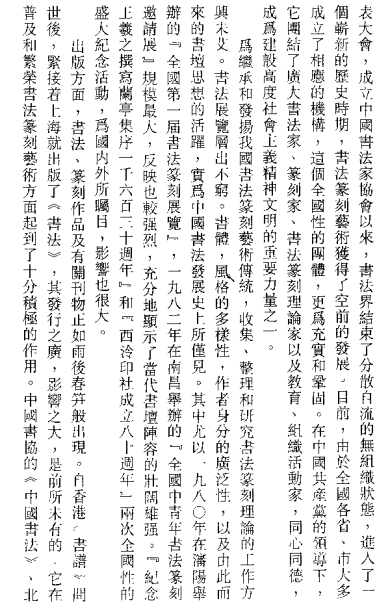 表大會，成立中國書法家協會以來，書法界結束了分散自流的無組織狀態，進入了一
個嶄新的歷史時期，書法篆刻藝術獲得了空前的發展。目前，由於全國各省、市大多
成立了相應的機構，這個全國性的團體，更爲充實和鞏固。在中國共産黨的領導下，
它團結了廣大書法家、篆刻家、書法篆刻理論家以及教育、組織活動家，同心同德，
成爲建設高度社會主義精神文明的重要力量之一。
爲繼承和發揚我國書法篆刻藝術傳統，收集、整理和研究書法篆刻理論的工作方
興未艾。書法展覽層出不窮。書體，風格的多樣性，作者身分的廣泛性，以及由此而
來的書壇思想的活躍，實爲中國書法發展史上所僅見。其中尤以一九八〇年在瀋陽舉
辦的『全國第一届書法篆刻展覽』，一九八二年在南昌舉辦的『全國中青年書法篆刻
邀請展』規模最大，反映也較强烈，充分地顯示了當代書壇陣容的壯闊雄强。『紀念
王羲之撰寫蘭亭集序一千六百三十週年』和『西泠印社成立八十週年』兩次全國性的
盛大紀念活動，爲國内外所矚目，影響也很大。
出版方面，書法、篆刻作品及有關刊物正如雨後春笋般出現。自香港《書譜》問
世後，緊接着上海就出版了《書法》，其發行之廣，影響之大，是前所未有的。它在
普及和繁荣書法篆刻藝術方面起到了十分積極的作用。中國書協的《中國書法》、北